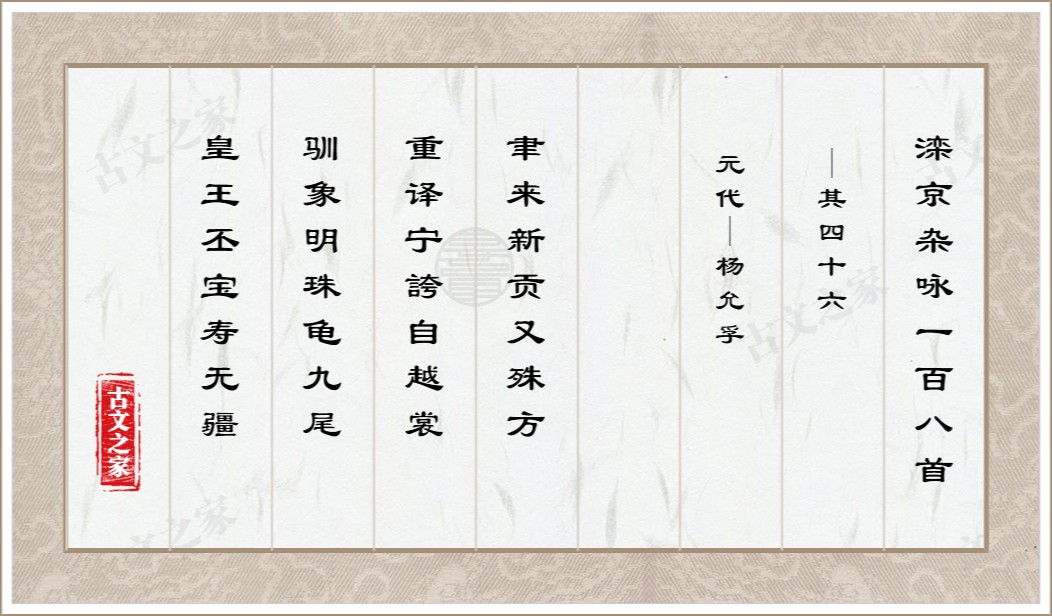 滦京杂咏一百八首
—其四十六
元代—杨允孚
聿来新贡又殊方
重译宁誇自越裳
驯象明珠龟九尾
皇王丕宝寿无疆
古文之家
古文之家
古文之家
古文之家